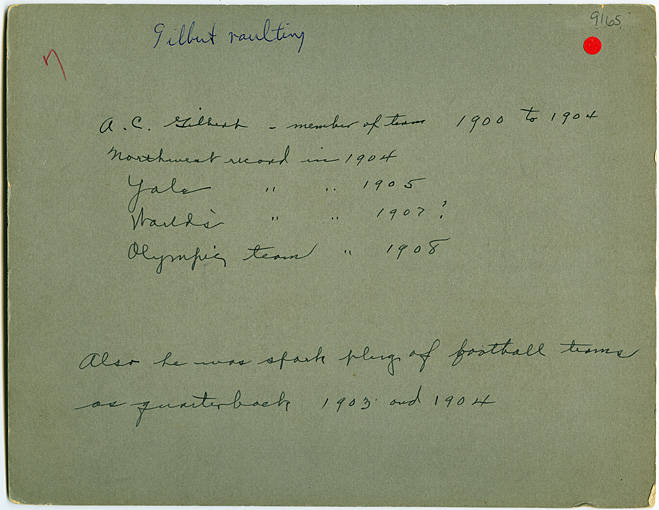 9165
Gilbert vaulting
n
A. C. Gilbert - member of team 1900 to 1904
Northwest record in 1904
Yale " " 1905
World's " " 1907?
Olympic team " 1908
Also he was spark plug of football teams
as quarterback 1903 and 1904